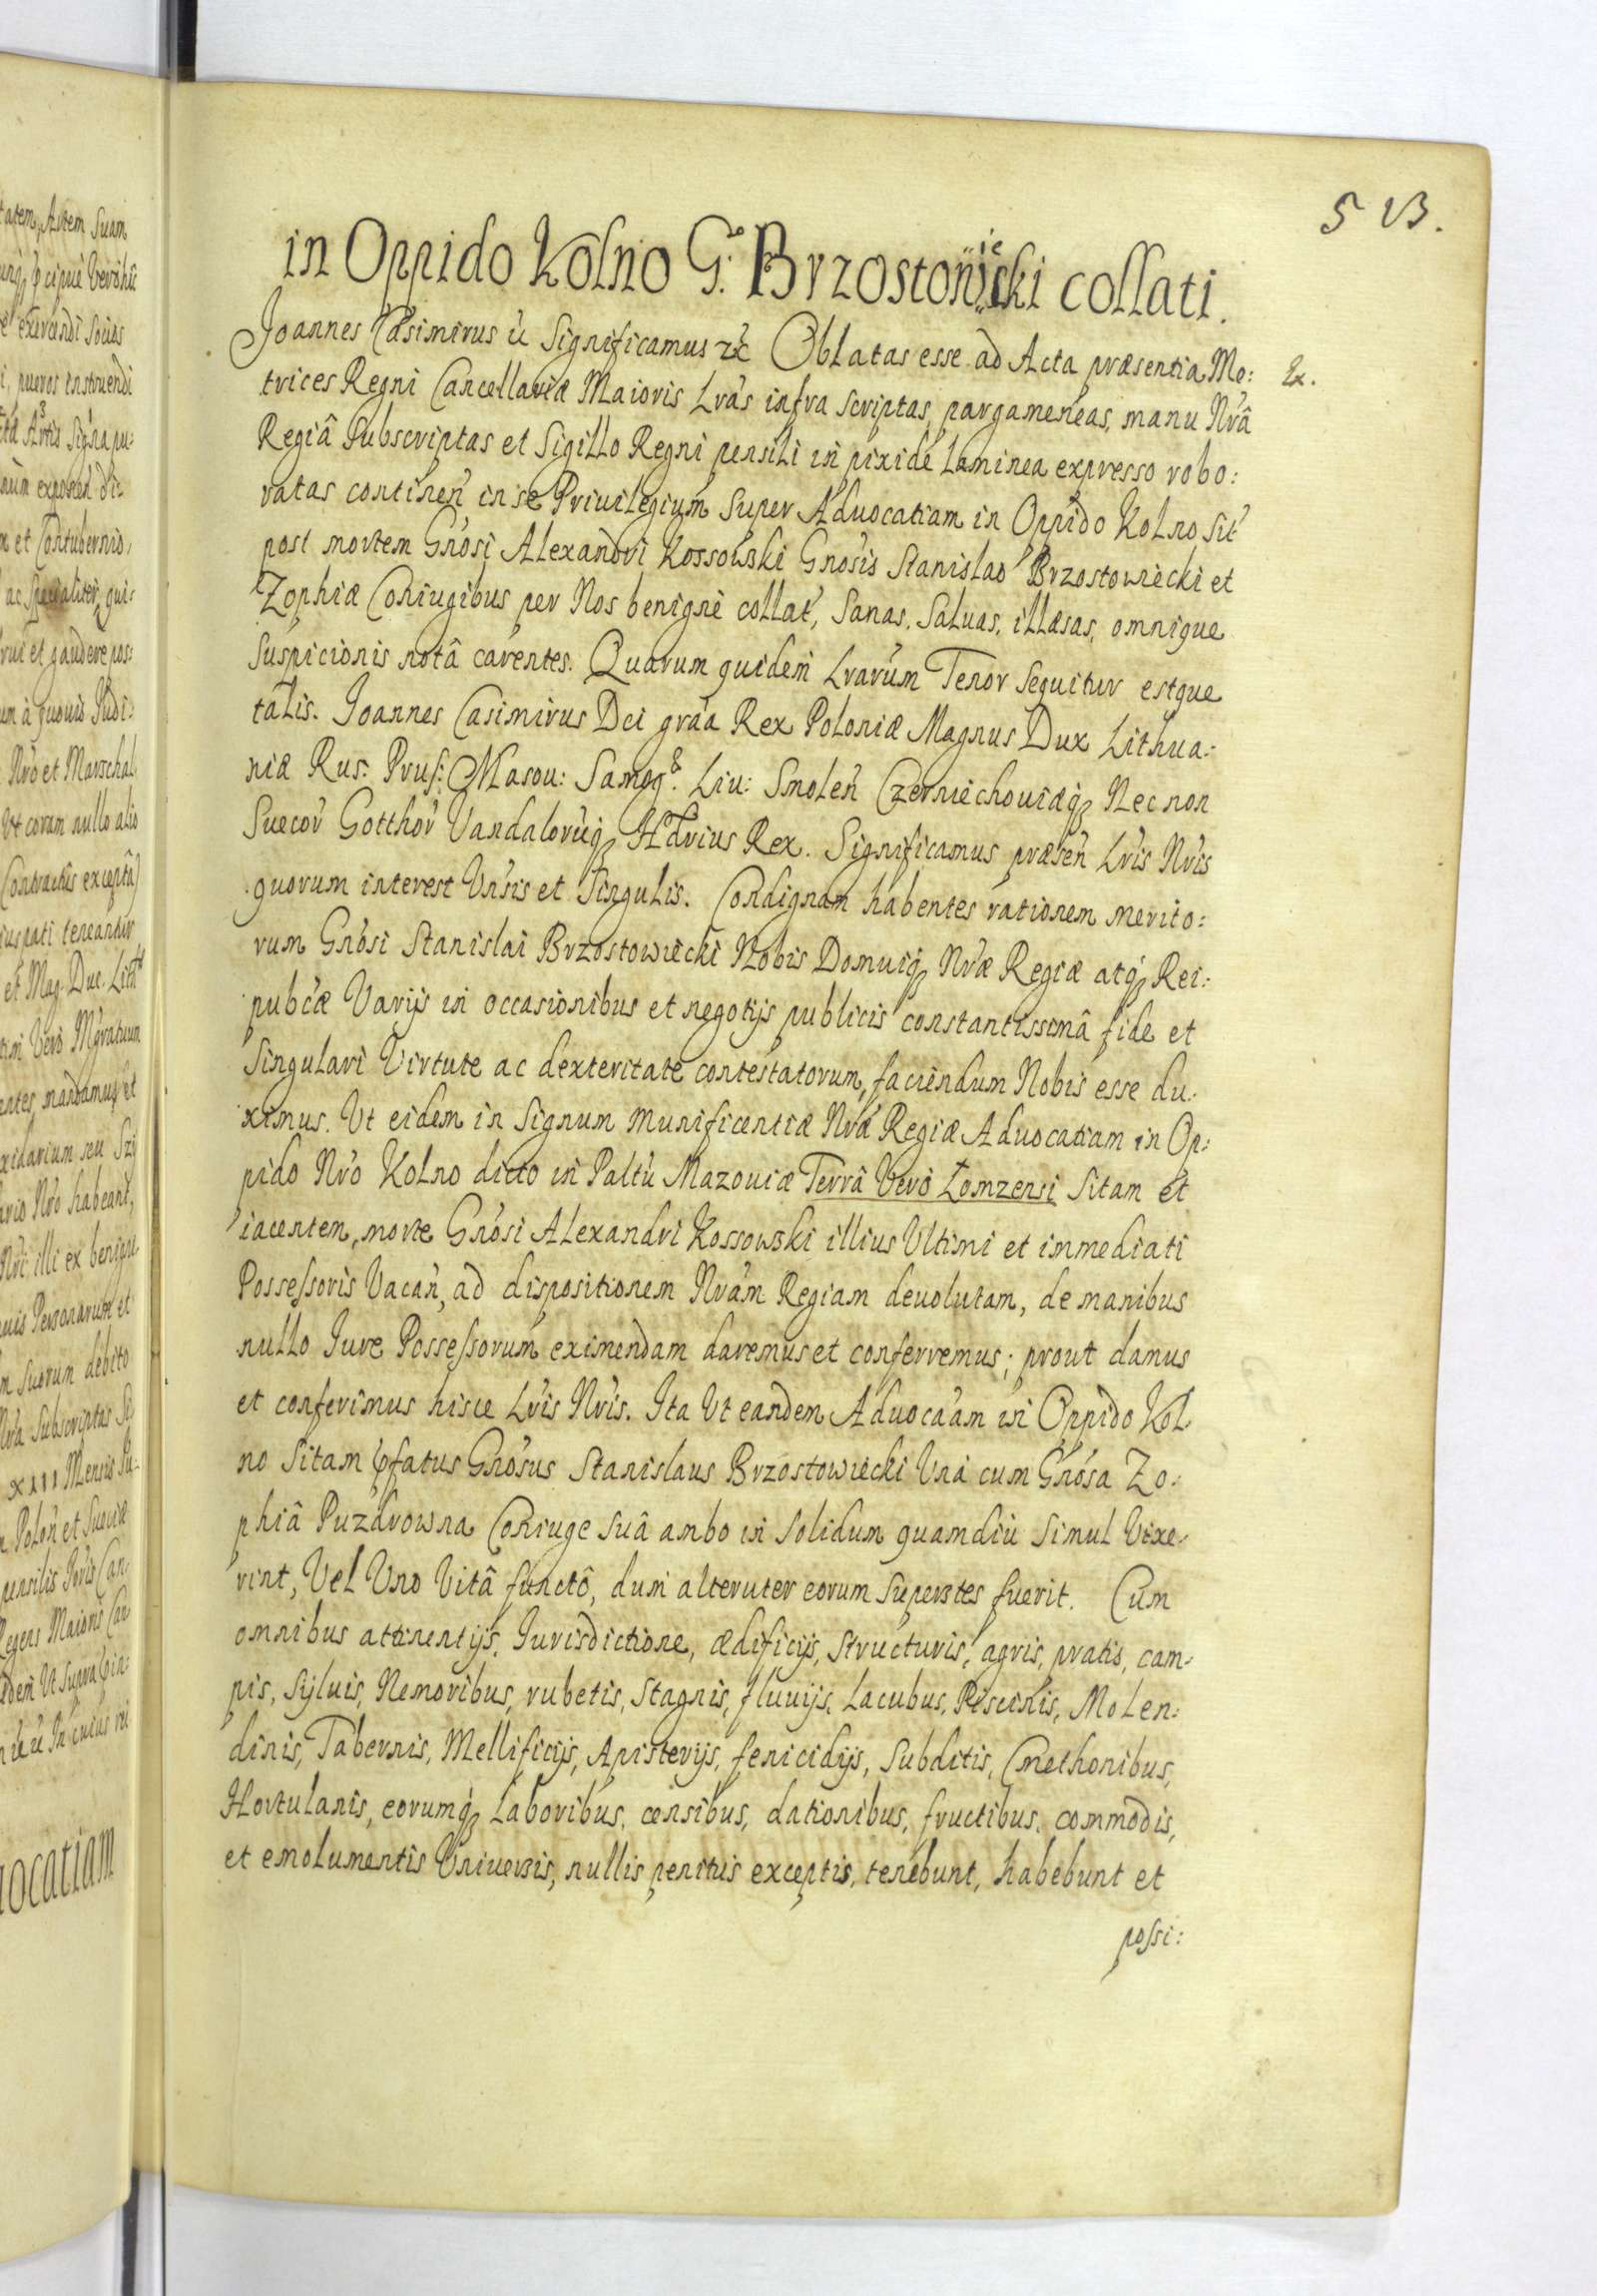 513.
in Oppido Kolno G. Brzostowiecki collati.
Joannes Casimirus &c Significamus &c Oblatas esse ad Acta præsentia Me: Ex.
trices Regni Cancellariæ Maioris Lrás infra scriptas, pargameneas, manu Nrâ
Regiâ Subscriptas et Sigillo Regni pensili in pixide laminea expresso robo:
ratas continen̄ in se Priuilegium Super Aduocatiam in Oppido Kolno Sit̄
post mortem Gnósi Alexandri Kossowski Gnósis Stanislao Brzostowiecki et
Zophiæ Coniugibus per Nos benignè collat̄, Sanas, Saluas, illæsas, omnique
Suspicionis notâ carentes. Quarum quidem Lrarúm Tenor Sequitur estque
talis. Joannes Casimirus Dei gráa Rex Poloniæ Magnus Dux Lithua:
niæ Rus: Prus: Masou: Samog: Liu: Smolen̄ Czerniechouiæq̨ Nec non
Suecor̄ Gotthor̄ Vandalorúq̨ Hdrius Rex. Significamus præsen̄ Lris Nris
quorum interest Vnsis et Singulis. Condignam habentes rationem merito:
rum Gnósi Stanislai Brzostowiecki Nobis Domuiq̨ Nræ Regiæ atq̨ Rei:
pubcæ Varijs in occasionibus et negotijs publicis constantissimâ fide et
Singulari Virtute ac dexteritate contestatorum, faciendum Nobis esse du:
ximus. Vt eidem in Signum munificentiæ Nræ Regiæ Aduocatiam in Op:
pido Nro Kolno dicto in Paltù Mazouiæ Terrâ Verò Łomzensi Sitam et
iacentem, morte Gnósi Alexandri Kossowski illius Vltimi et immediati
Possessoris Vacan̄, ad dispositionem Nrám Regiam deuolutam, de manibus
nullo Iure Possessorum eximendam daremus et conferremus; prout damus
et conferimus hisce Lris Nris. Ita Vt eandem Aduocáam in Oppido Kol
no Sitam p̄fatus Gnósus Stanislaus Brzostowiecki Vná cum Gnósa Zo:
phiâ Puzdrowna Coniuge Suâ ambo in Solidum quamdiù Simul Vixe:
rint, Vel Vno Vitâ functô, dum alteruter eorum Superstes fuerit. Cum
omnibus attinentijs, Iurisdictione, ædificijs, Structuris, agris, pratis, cam:
pis, Syluis, Nemoribus, rubetis, Stagnis, fluuijs, Lacubus, Piscinis, Molen:
dinis, Tabernis, Mellificijs, Apisterijs, fenicidijs, Subditis, Cmethonibus,
Hortulanis, eorumq̨ Laboribus, censibus, dationibus, fructibus, commodis,
et emolumentis Vniuersis, nullis penitùs exceptis, tenebunt, habebunt et
possi: